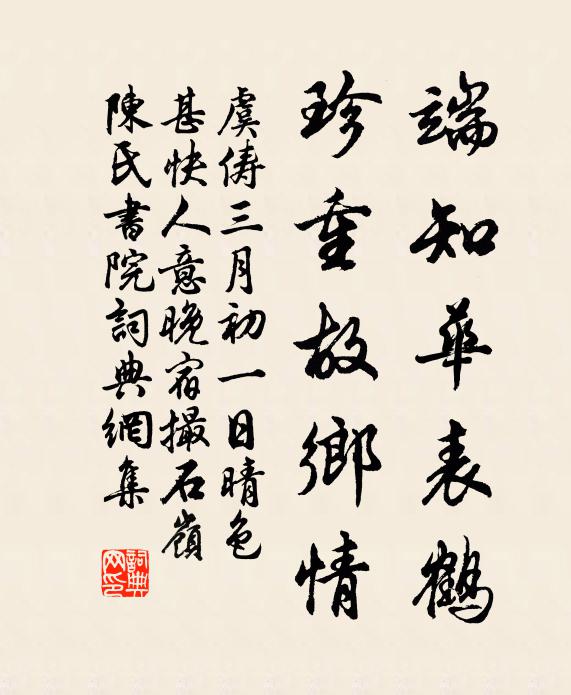 端知華表鹤
珍重故鄉情
虞俦三月初一日晴色
甚快人意晚宿撮石嶺
陳氏書院詞典網集
詞典网印